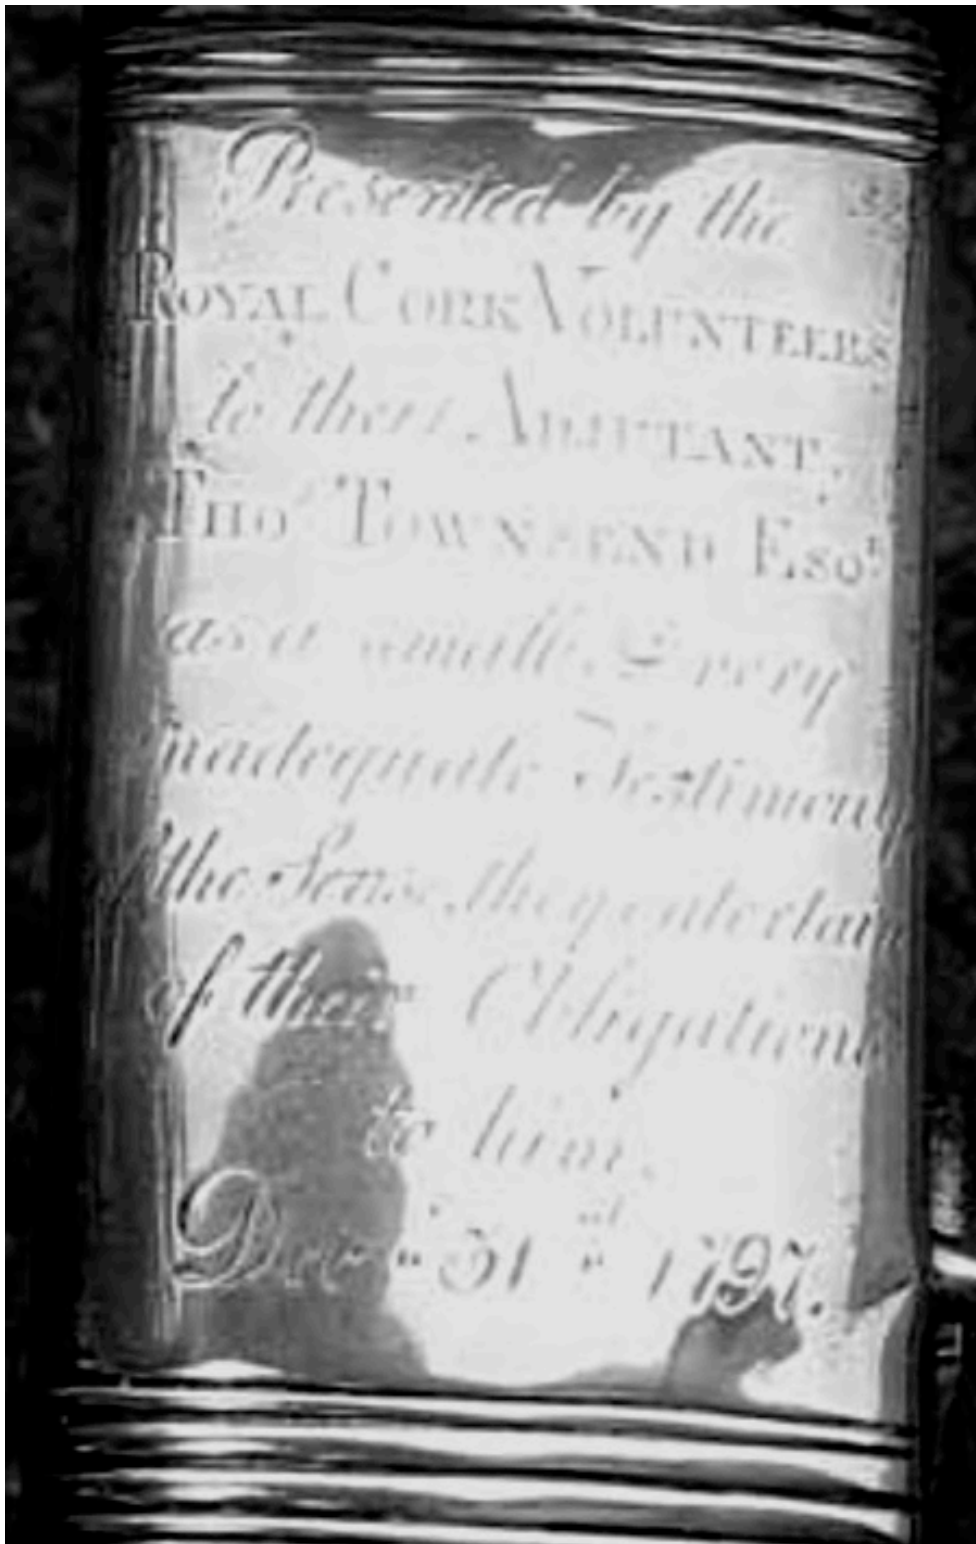 Presented by the
ROYAL CORK VOLUNTEERS
to their ADJUTANT,
THOˢ TOWNSEND ESQʳ
as a small, & very
inadequate Testimony
of the Sense, they entertain
of their Obligations
to him.
Decʳ 31ˢᵗ 1797.